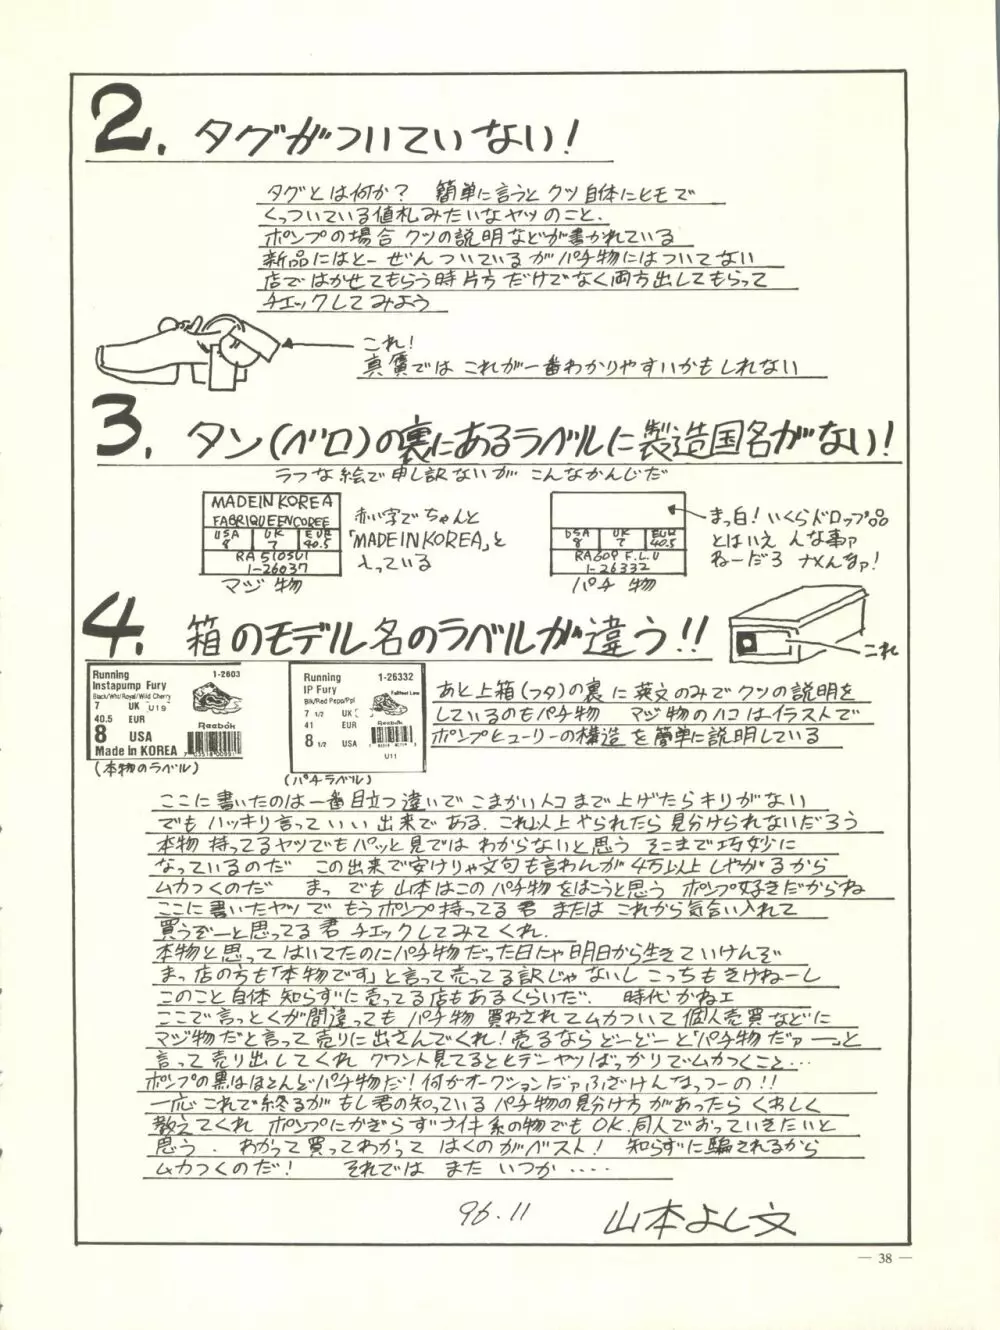 2. タグがついていない!
タグとは何か? 簡単に言うとクツ自体にヒモで
くっついている値札みたいなヤツのこと.
ポンプの場合 クツの説明などが書かれている
新品にはとーぜんついているがパチ物にはついてない
店ではかせてもらう時片方だけでなく両方出してもらって
チェックしてみよう
これ!
真贋では これが一番わかりやすいかもしれない
3. タン(ベロ)の裏にあるラベルに製造国名がない!
ラフな絵で申し訳ないが こんなかんじだ
MADEIN KOREA
FABRIQUEENCOREE
USA 8 UK 7 EUR 40.5
RA 510501
1-26037
マジ物
赤い字でちゃんと
「MADEINKOREA」と
入っている
USA 8 UK 7 EUR 40.5
RA609 F.L.U
1-26332
パチ物
まっ白! いくらドロップ品
とはいえ んな事ァ
ねーだろ ナメんなァ!
4. 箱のモデル名のラベルが違う!!
これ
Running 1-2603
Instapump Fury
Black/Wht/Royal/Wild Cherry
7 UK U19
40.5 EUR
8 USA
Reebok
Made in KOREA
(本物のラベル)
Running 1-26332
IP Fury
Blk/Red Pepo/Ppl
7 1/2 UK
41 EUR
8 1/2 USA
U11
(パチラベル)
あと上箱(フタ)の裏に英文のみでクツの説明を
しているのもパチ物 マジ物のハコはイラストで
ポンプヒューリーの構造を簡単に説明している
ここに書いたのは一番目立つ違いで こまかいトコまで上げたらキリがない
でも ハッキリ言っていい出来である. これ以上やられたら見分けられないだろう
本物持ってるヤツでもパッと見ではわからないと思う そこまで巧妙に
なっているのだ この出来で安けりゃ文句も言わんが4万以上しやがるから
ムカつくのだ まっ でも山本はこのパチ物をはこうと思う ポンプ好きだからね
ここに書いたヤツで もうポンプ持ってる君 または これから気合い入れて
買うぞーと思ってる君 チェックしてみてくれ.
本物と思って はいてたのにパチ物だった日にゃ明日から生きていけんぞ
まっ店の方も「本物です」と言って売ってる訳じゃないし こっちもきけねーし
このこと自体 知らずに売ってる店もあるくらいだ. 時代かねェ
ここで言っとくが間違っても パチ物 買わされてムカついて個人売買などに
マジ物だと言って売りに出さんでくれ! 売るならどーどーと「パチ物だァー」と
言って売り出してくれ クワント見てるととデーヤツばっかりでムカつくこと…
ポンプの黒はほとんどパチ物だ! 何がオークションだァふざけんなっつーの!!
一応これで終るが もし君の知っている パチ物の見分け方があったら くわしく
教えてくれ ポンプにかぎらずナイキ系の物でもOK. 同人でおっていきたいと
思う. わかって買ってわかって はくのがベスト! 知らずに騙されるから
ムカつくのだ! それでは また いつか ‥‥
96.11 山本よし文
— 38 —